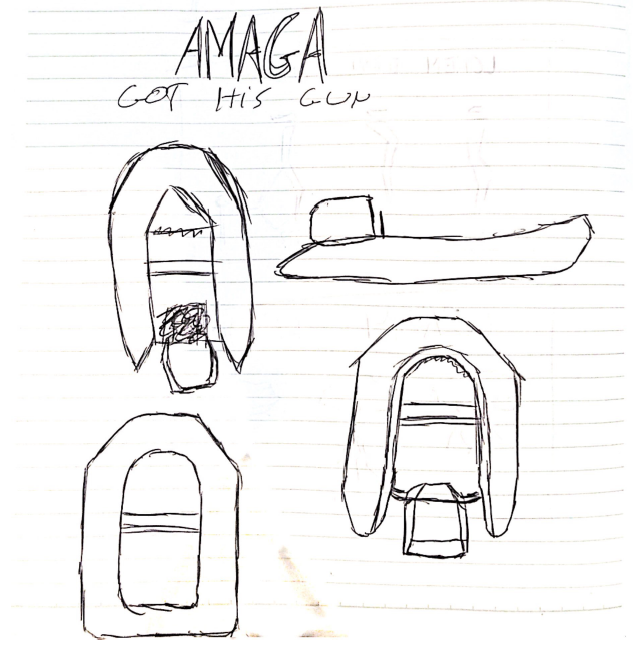 AMAGA
GOT HIS GUN